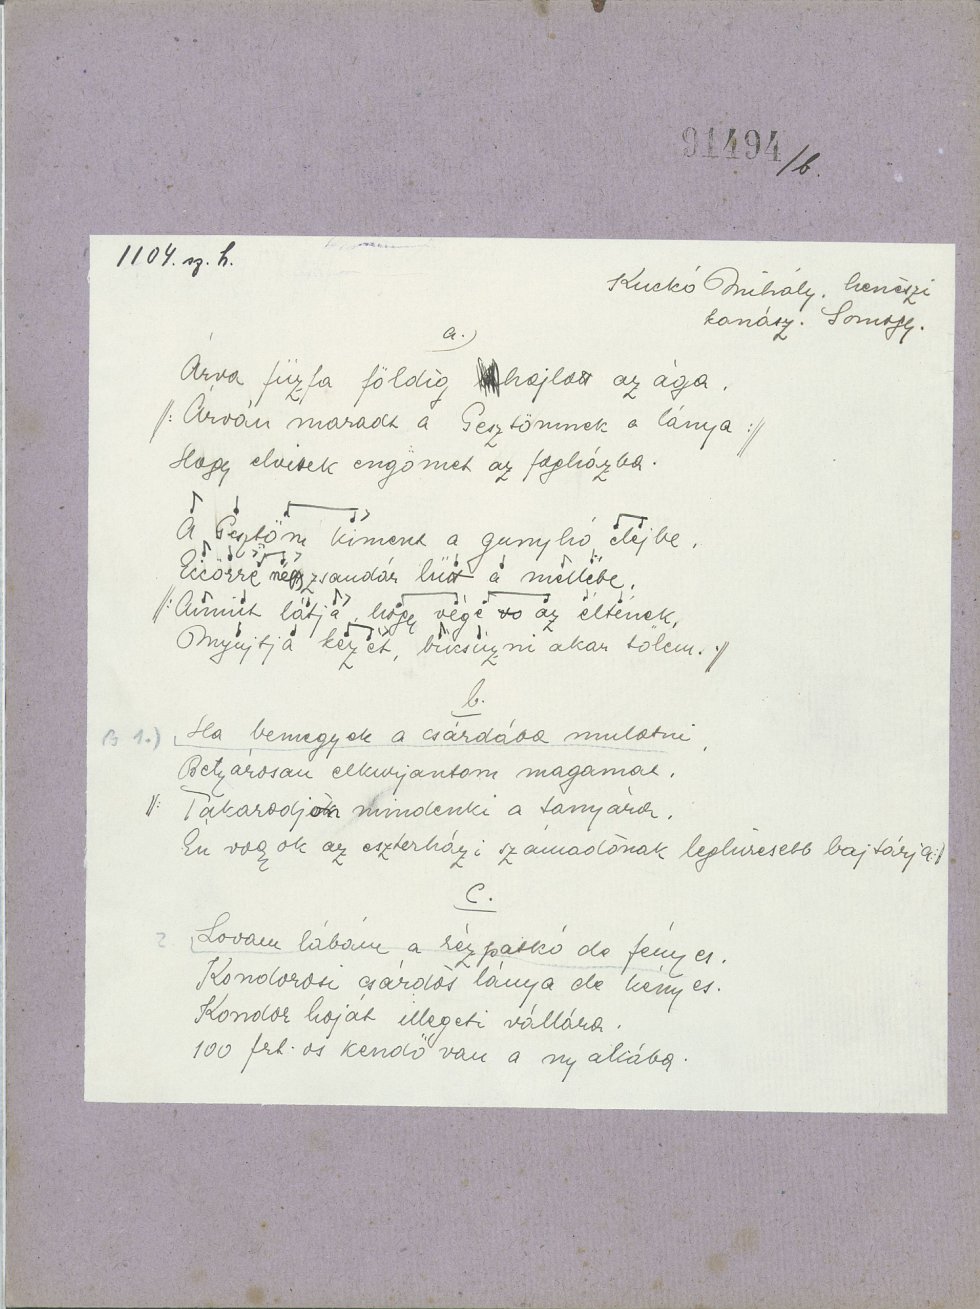 91494/b.
1104. sz. h.
Kuckó Mihály, henészi
kanász. Somogy.
a.)
Árva fűzfa földig hajlott az ága.
//: Árván maradt a Gesztömnek a lánya ://
Hogy elvitek engömet az fogházba.
A Gesztöm kiment a gunyhó elejbe,
négy zsandár lüt a mellébe,
//: Amint látja, hogy vége vo az éltének,
Nyujtja kezét, búksúzni akar tőlem. ://
b.
B 1.) Ha bemegyek a csárdába mulatni,
Betyárosan elkurjantom magamat.
//: Takarodjon mindenki a tanyára,
Én vagyok az eszterházi számadónak leghíresebb bajtárja :/
c.
2. Lovam lábám a rézpatkó de fényes.
Kondorosi csárdás lánya de kényes.
Kondor haját illegeti vállára.
100 frt. os kendő van a nyakába.